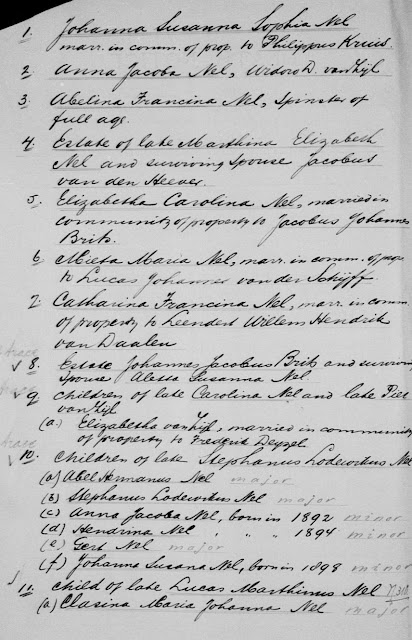 1. Johanna Susanna Sophia Nel
marr. in comm. of prop. to Philippus Kruis.
2 Anna Jacoba Nel, Widow D. van Zijl
3. Abelina Francina Nel, Spinster of
full age.
4. Estate of late Marthina Elizabeth
Nel and surviving Spouse Jacobus
van den Heever.
5. Elizabetha Carolina Nel, married in
community of property to Jacobus Johannes
Brits.
6 Maria Nel, marr. in comm. of prop.
to Lucas Johannes van der Schijff
7. Catharina Francina Nel, marr. in comm.
of property to Leendert Willem Hendrik
van Daalen
✓ 8. Estate Johannes Jacobus Brits and surviving
Spouse Aletta Susanna Nel.
✓ 9 Children of late Carolina Nel and late Piet
van Zijl
(a.) Elizabetha van Zijl, married in community
of property to Fredrik
✓ 10. Children of late Stephanus Lodewikus Nel
(a) Abel Hermanus Nel major
(b) Stephanus Lodewikus Nel major
(c) Anna Jacoba Nel, born in 1892 minor
(d) Hendrina Nel " " 1894 minor
(e) Gert Nel major
(f) Johanna Susana Nel, born in 1898 minor
11. Child of late Lucas Marthinus Nel
(a) Clasina Maria Johanna Nel major